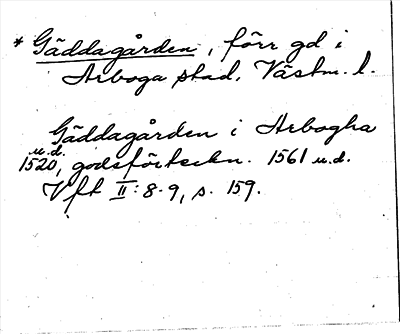 * Gäddagården, förr gd i
Arboga stad, Västm. l.
Gäddagården i Arbogha
u.d.
1520, godsförteckn. 1561 u.d.
Vft II:8-9, s. 159.